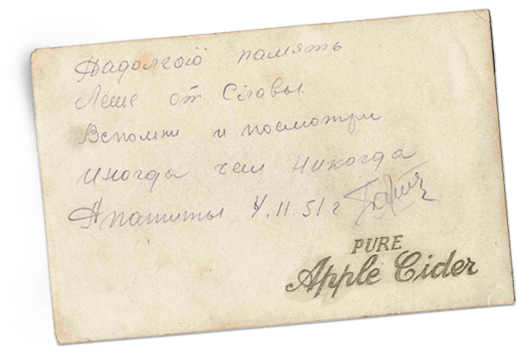 Надолгою память
Леше от Славы
Вспомни и посмотри
Иногда чем Никогда
Апатиты 4.11.51 г
PURE
Apple Cider